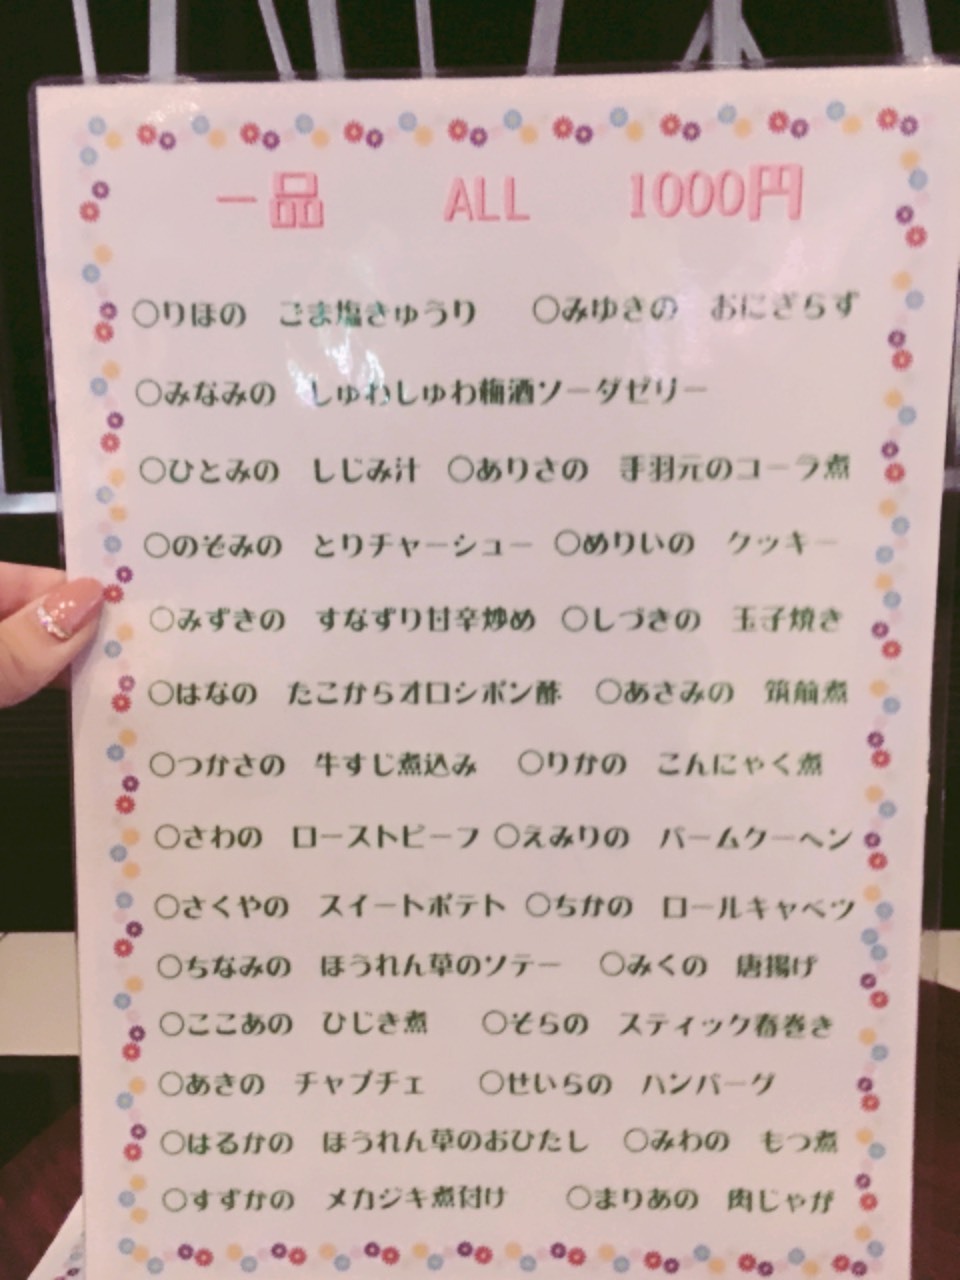 一品　ALL　1000円
○りほの　ごま塩きゅうり　○みゆきの　おにぎらず
○みなみの　しゅわしゅわ梅酒ソーダゼリー
○ひとみの　しじみ汁　○ありさの　手羽元のコーラ煮
○のぞみの　とりチャーシュー　○めりいの　クッキー
○みずきの　すなずり甘辛炒め　○しづきの　玉子焼き
○はなの　たこからオロシポン酢　○あさみの　筑前煮
○つかさの　牛すじ煮込み　○りかの　こんにゃく煮
○さわの　ローストビーフ　○えみりの　バームクーヘン
○さくやの　スイートポテト　○ちかの　ロールキャベツ
○ちなみの　ほうれん草のソテー　○みくの　唐揚げ
○ここあの　ひじき煮　○そらの　スティック春巻き
○あきの　チャプチェ　○せいらの　ハンバーグ
○はるかの　ほうれん草のおひたし　○みわの　もつ煮
○すずかの　メカジキ煮付け　○まりあの　肉じゃが